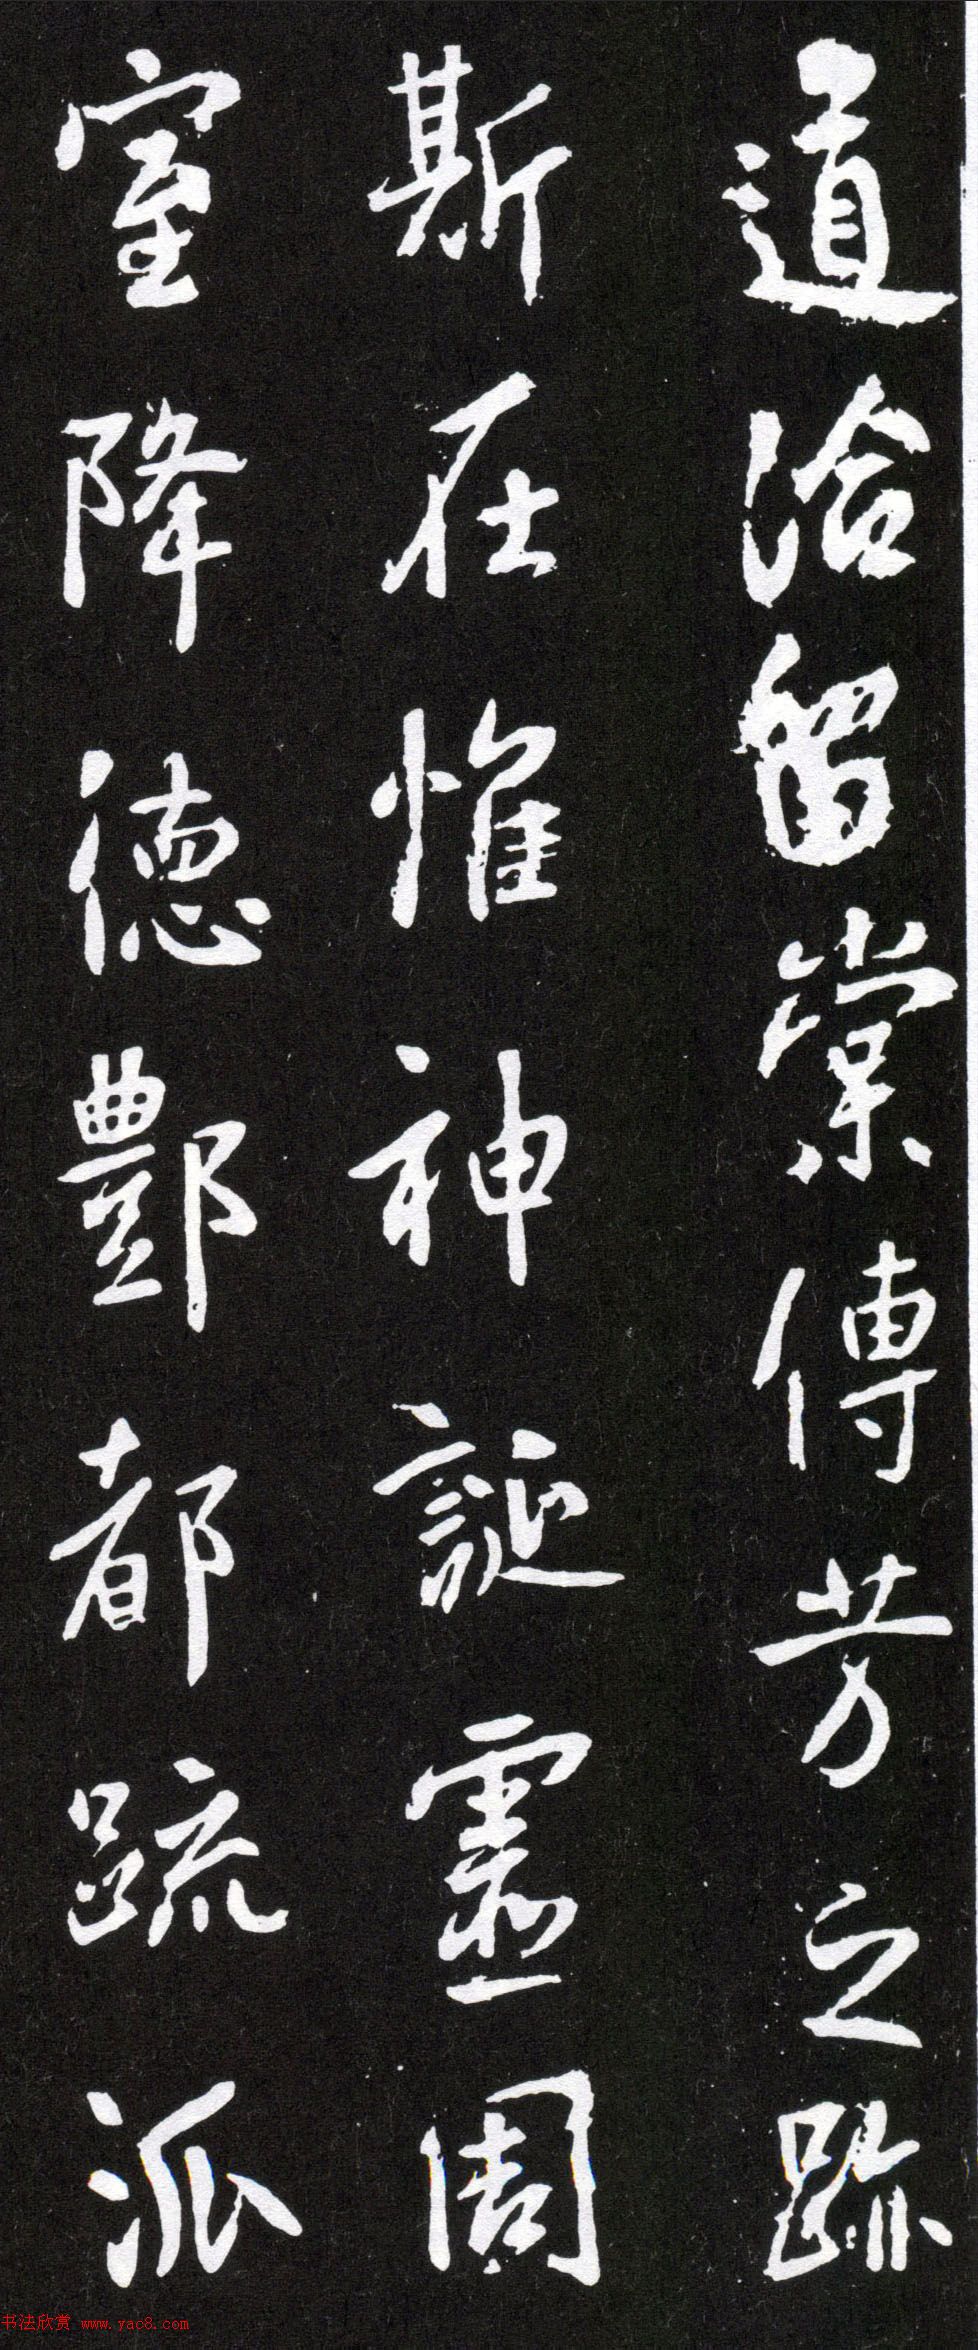 道洽留棠傳芳之跡
斯在惟神誕靈周
室降德酆都疏派
书法欣赏 www.yac8.com